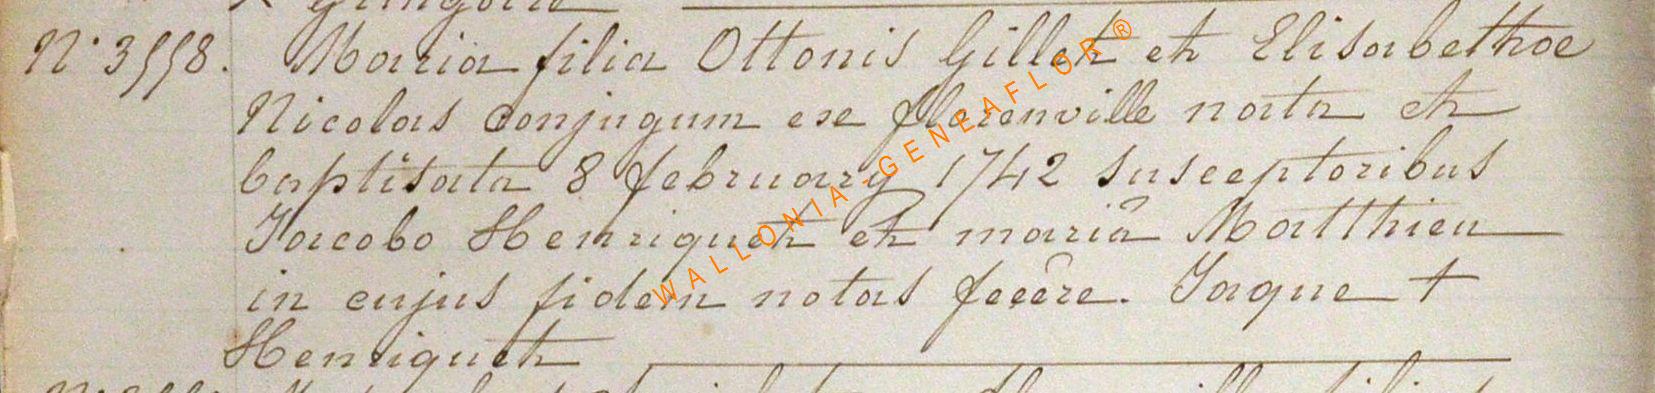 N° 3558. Maria filia Ottonis Gillet et Elisabethae
Nicolas conjugum ex florenville nata et
baptisata 8 february 1742 susceptoribus
Jacobo Henriquet et mariâ Matthieu
in cujus fidem notas fecêre. Jaque +
Henriquet
WALLONIA-GENEAFLOR®